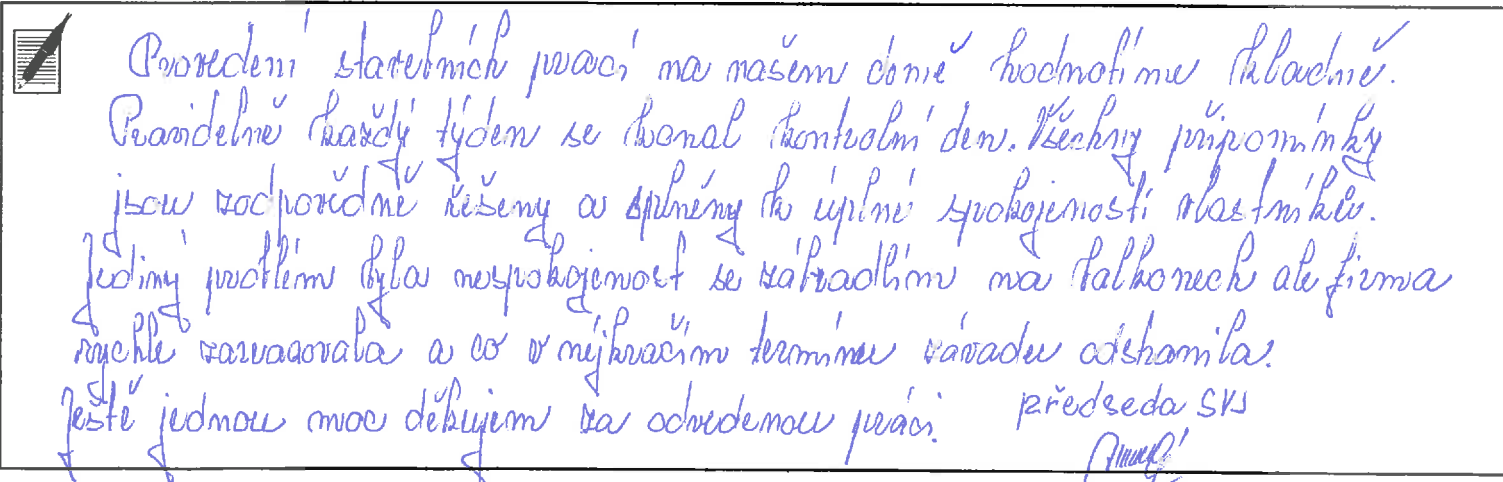 Provedení stavebních prací na našem domě hodnotíme kladně.
Pravidelně každý týden se konal kontrolní den. Všechny připomínky
jsou zodpovědně řešeny a splněny k úplné spokojenosti vlastníků.
Jediný problém byla nespokojenost se zábradlím na balkonech ale firma
rychle zareagovala a co v nejkračším termínu závadu odstranila.
Ještě jednou moc děkujem za odvedenou práci. předseda SVJ